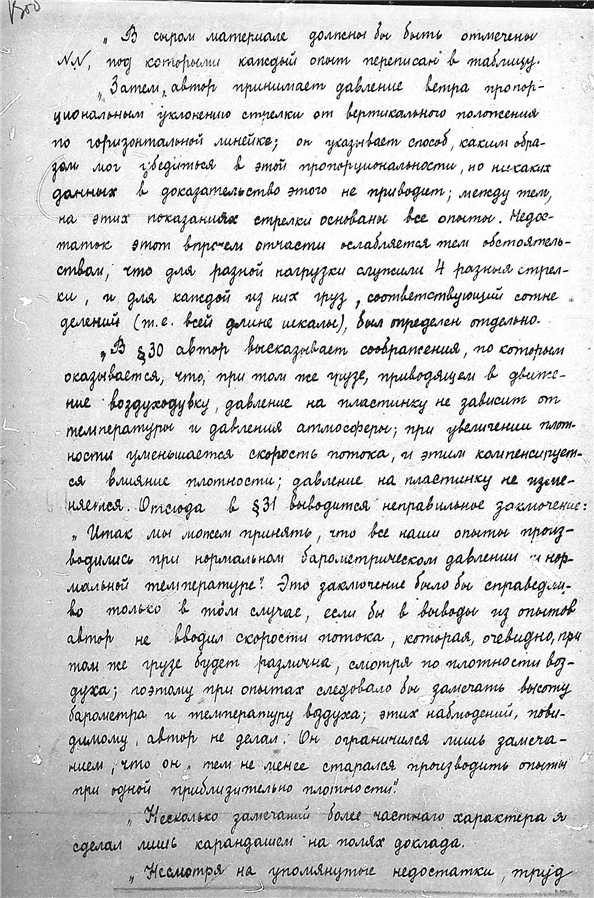 „В сыром материале должны бы быть отмечены
NN, под которыми каждый опыт переписан в таблицу.
„Затем, автор принимает давление ветра пропор-
циональным уклонению стрелки от вертикального положения
по горизонтальной линейке; он указывает способ, каким обра-
зом мог убедиться в этой пропорциональности, но никаких
данных в доказательство этого не приводит; между тем,
на этих показаниях стрелки основаны все опыты. Недос-
таток этот впрочем отчасти ослабляется тем обстоятель-
ством, что для разной нагрузки служили 4 разныя стрел-
ки, и для каждой из них груз, соответствующий сотне
делений (т.е. всей длине шкалы), был определен отдельно.
„В §30 автор высказывает соображения, по которым
оказывается, что, при том же грузе, приводящем в движе-
ние воздуходувку, давление на пластинку не зависит от
температуры и давления атмосферы; при увеличении плот-
ности уменьшается скорость потока, и этим компенсирует-
ся влияние плотности; давление на пластинку не изме-
няется. Отсюда в §31 выводится неправильное заключение:
„Итак мы можем принять, что все наши опыты произ-
водились при нормальном барометрическом давлении и нор-
мальной температуре". Это заключение было бы справедли-
во только в том случае, если бы в выводы из опытов
автор не вводил скорости потока, которая, очевидно, при
том же грузе будет различна, смотря по плотности воз-
духа; поэтому при опытах следовало бы замечать высоту
барометра и температуру вздуха; этих наблюдений, пови-
димому, автор не делал. Он ограничился лишь замеча-
нием, что он „тем не менее старался производить опыты
при одной приблизительно плотности".
„Несколько замечаний более частнаго характера я
сделал лишь карандашем на полях доклада.
„Несмотря на упомянутые недостатки, труд